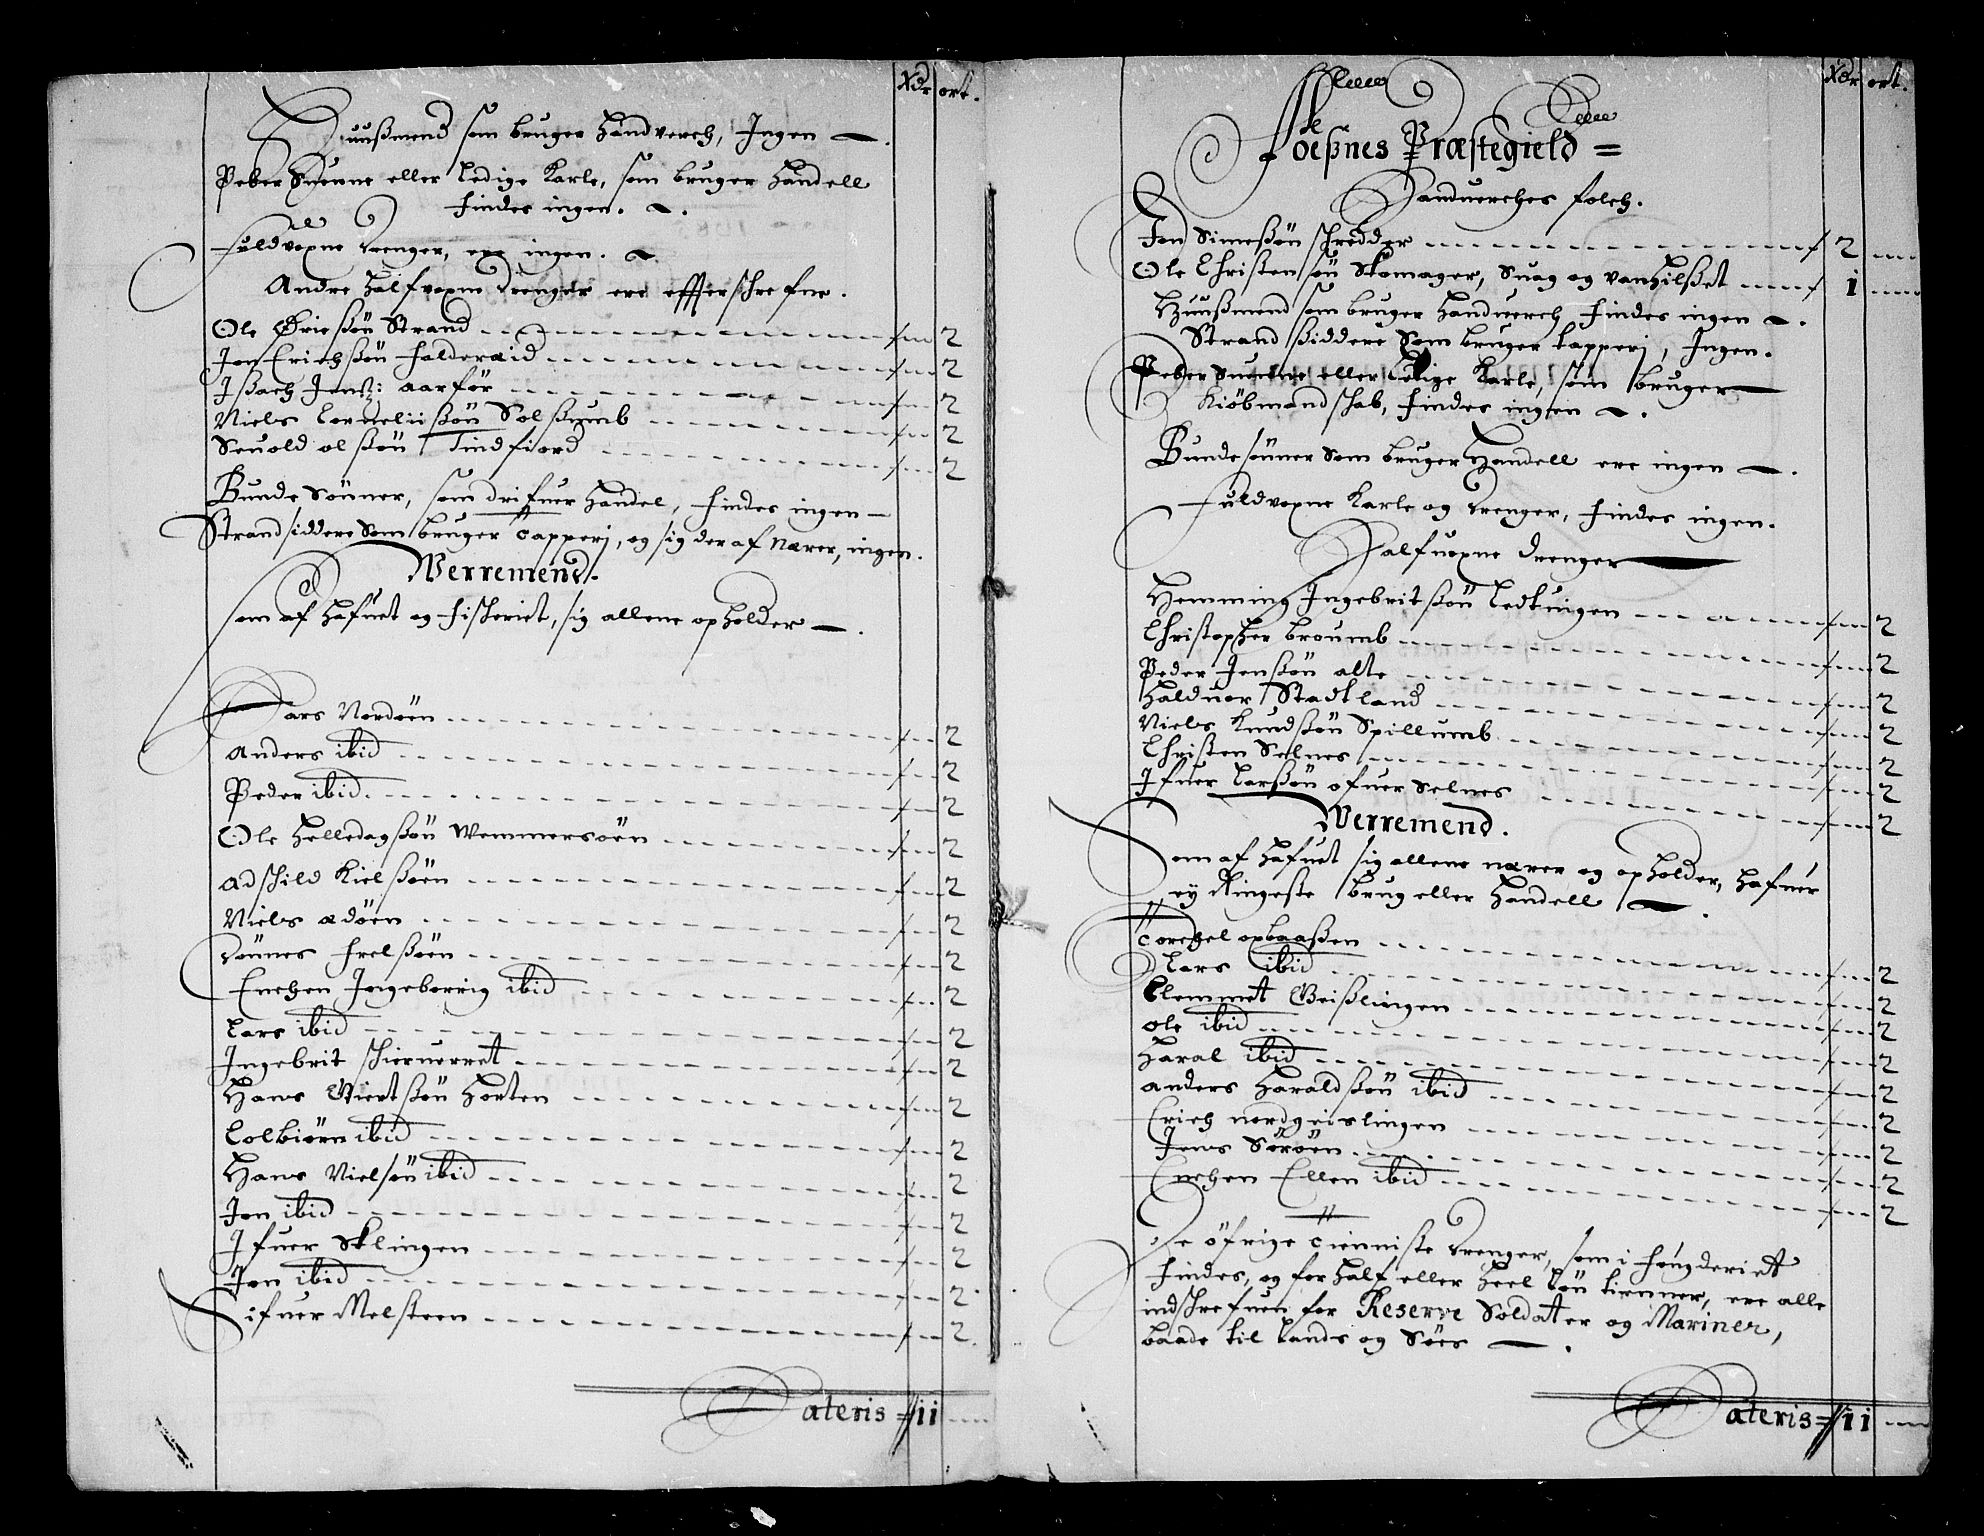 Xdr ort.
Huußmend som bruger handverch, Ingen
Peber Suenne eller ledige Karle, som bruger handell
findes ingen.
fuldvoxne drenger, ere ingen.
Andre halfvoxne drenger ere effterschrefne.
Ole Strand 2
Jon Erichsøn Falderaid 2
Ißach Jenß: aarfør 2
Niels Corneliißøn Solßumb 2
Seuold olßøn Tindfiord 2
Bunde Sønner, som drifuer handel, findes ingen
Strandsiddere som bruger Tapperj, og sig deraf nærer, ingen.
Werremend.
som af hafuet og fischeriet, sig allene opholder
Lars Nordøen 2
Anders ibid 2
Peder ibid. 2
Ole helledagßøn Wemmersøen 2
Adschild Kielßøen 2
Niels adøen 2
Tønnes frelßøen 2
Enchen Ingeborrig ibid 2
Lars ibid 2
Ingebrit schieruerret 2
Hans horten 2
Colbiørn ibid 2
Hans Nielsøn ibid 2
Jon ibid 2
Ifuer Sklingen 2
Jon ibid 2
Sifuer Melsteen 2
Lateris = 11
Xdr ort.
Foeßnes Præstegield =
Handuerches folch.
Jon Simeßøn schredder 2
Ole Christensøn Skomager, Suag og vanhilßet 1
Huußmend som bruger handuerch findes ingen
Strandsiddere Som bruger tapperj, Ingen.
Peber Suenne eller ledige Karle, som bruger
Kiøbmandschab, findes ingen
Bundesønner som bruger Handell ere ingen
Fuldvoxne Karle og drenger, findes ingen.
Halfuoxne drenger
Hemming Ingebritßøn 2
Christopher broumb 2
Peder Jenßøn alte 2
Halduor Stadtland 2
Niels Knudßøn Spillumb 2
Christen Selnes 2
Ifuer Larßøn ofuer Selnes 2
Werremend.
Som af hafuet sig allene nærer og opholder, hafuer
ey Ringeste brug eller handell
Torchel opbaaßen 2
Lars ibid 2
Clemmet Geißlingen 2
Ole ibid 2
Haral ibid 2
Anders Haraldßøn ibid 2
Erich nordgeislingen 2
Jens Sørøen 2
Enchen Ellen ibid 2
De øfrige tienniste drenger, som i fougderiet
findes, og for half eller heel løn tienner, ere alle
indschrefuen for Reserve Soldatter og Mariner,
baade til lands og Søes
Lateris = 11